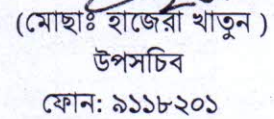 (মোছাঃ হাজেরা খাতুন )
উপসচিব
ফোন: ৯১১৮২০১